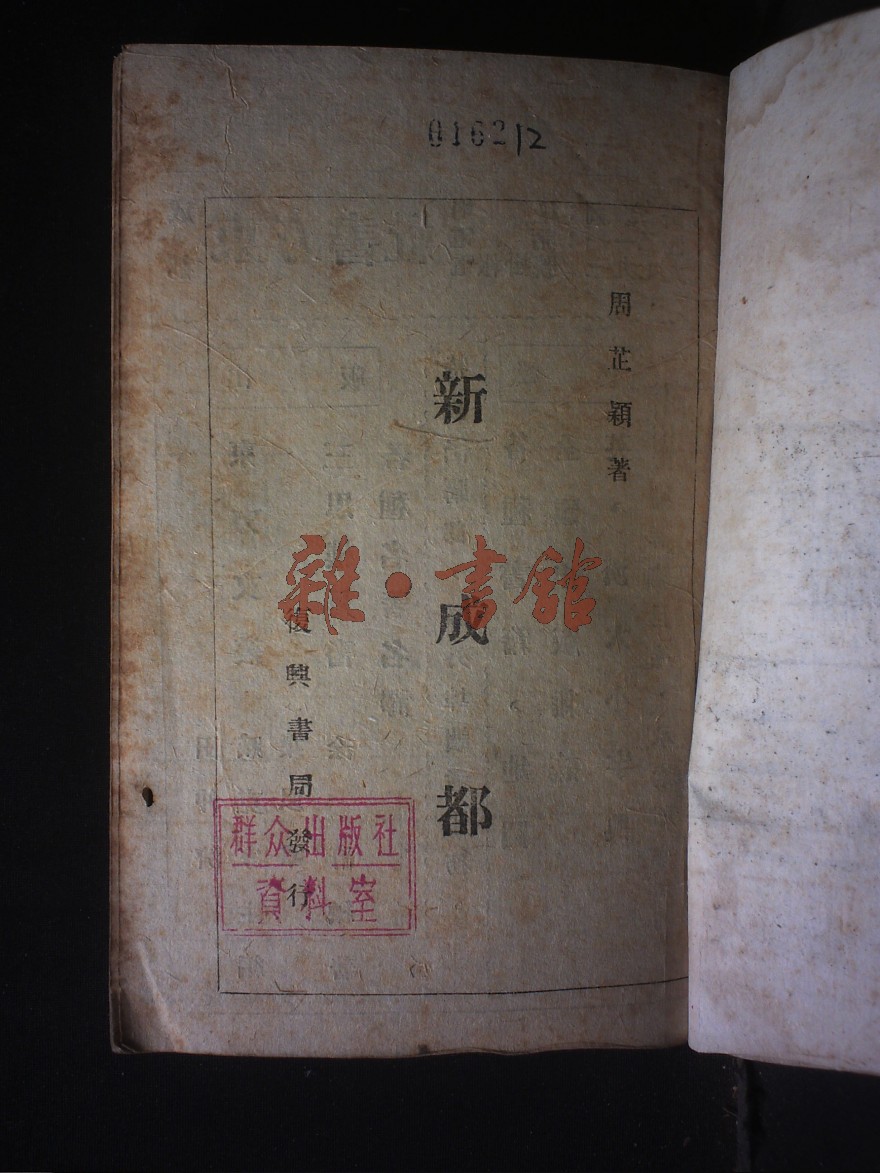 016212
周芷穎著
新成都
復興書局發行
雜·書館
群众出版社
資料室